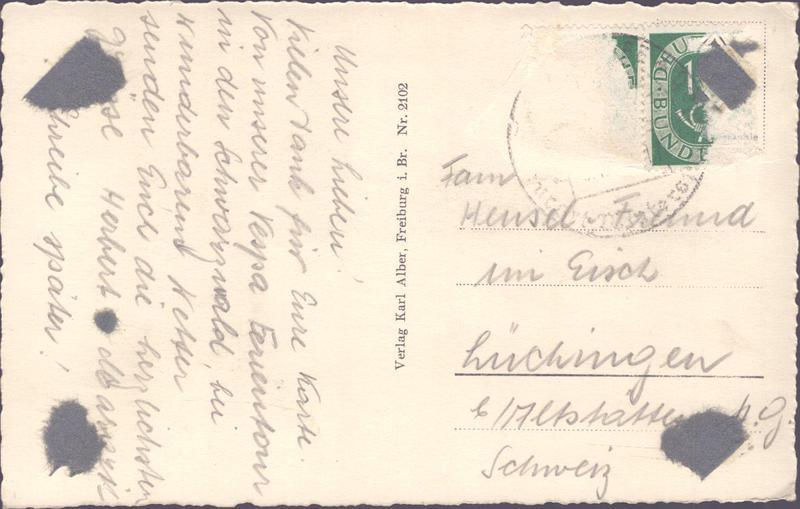 Unsre Lieben!
Vielen Dank für Eure Karte.
Von unserer Vespa Ferientour
in den Schwarzwald, bei
wunderbarem Wetter
senden Euch die herzlichsten
Herbert
später!
Verlag Karl Alber, Freiburg i. Br. Nr. 2102
DEU
BUNDE
Fam
Hensel-Freund
im Eisch
Lüchingen
b/Altstätten
Schweiz